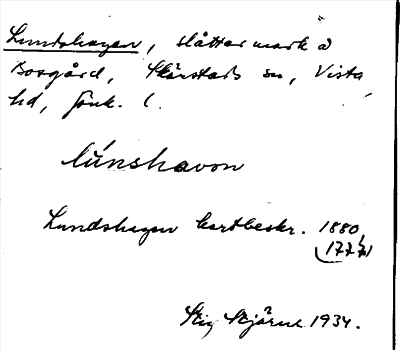 Lundshagen, slåttermark å
Bosgård, Skärstads sn, Vista
hd, Jönk. l.
lúnshavon
Lundshagen kartbeskr. 1880,
1777
Stig Stjärne 1934.